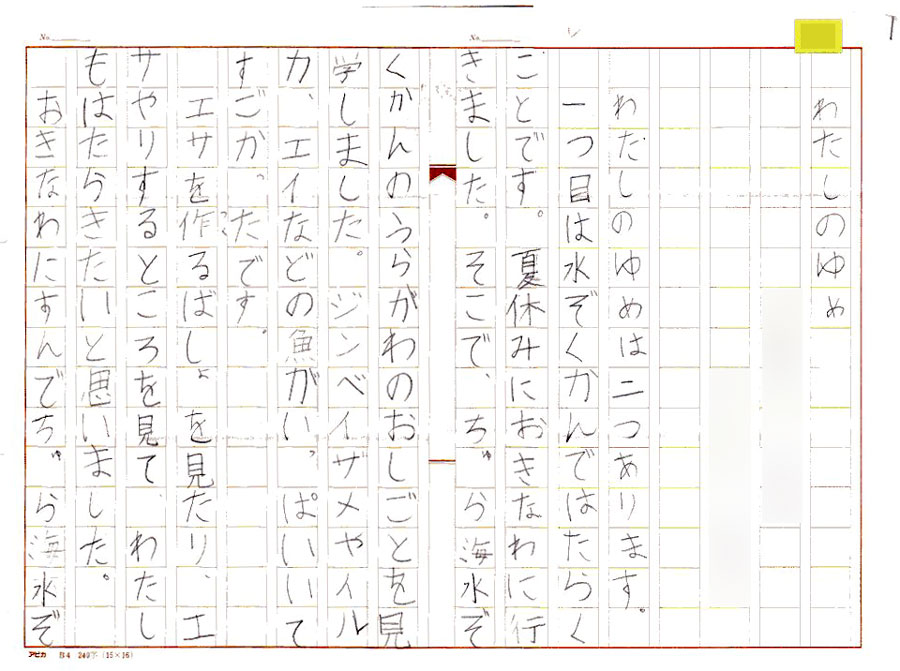 No.
No.
わたしのゆめ
わたしのゆめは二つあります。
一つ目は水ぞくかんではたらく
ことです。夏休みにおきなわに行
きました。そこで、ちゅら海水ぞ
くかんのうらがわのおしごとを見
学しました。ジンベイザメやイル
カ、エイなどの魚がいっぱいいて
すごかったです。
エサを作るばしょを見たり、エ
サやりするところを見て、わたし
もはたらきたいと思いました。
おきなわにすんでちゅら海水ぞ
アピカ B4 240字 (15×16)